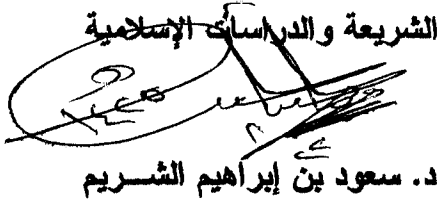 الشريعة والدراسات الإسلامية
د. سعود بن إبراهيم الشـــريم